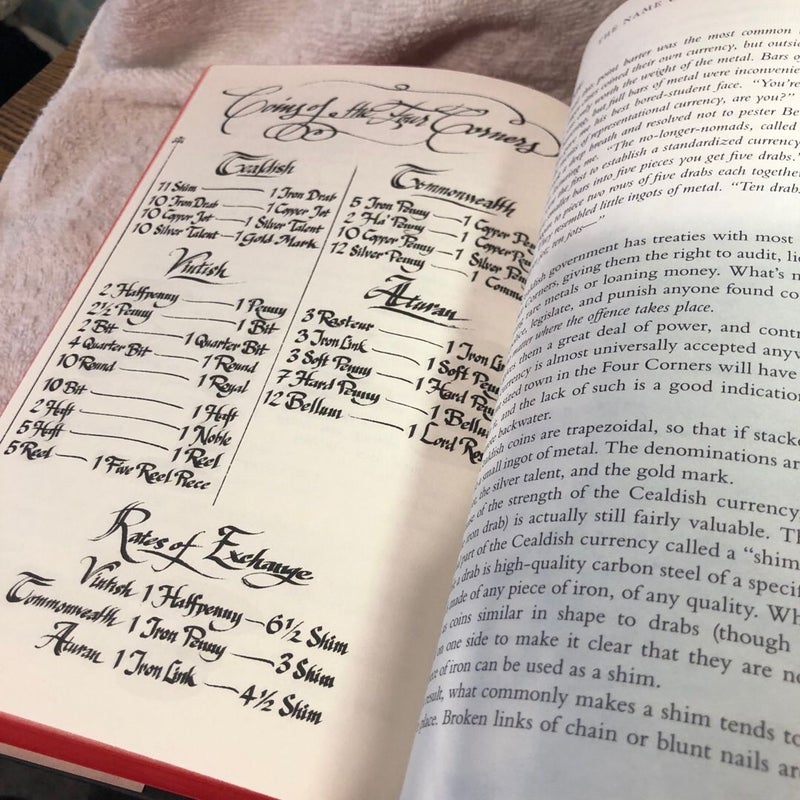 Coins of the Four Corners
Cealdish
11 Shim — 1 Iron Drab
10 Iron Drab — 1 Copper Jot
10 Copper Jot — 1 Silver Talent
10 Silver Talent — 1 Gold Mark
Vintish
2 Halfpenny — 1 Penny
2½ Penny — 1 Bit
2 Bit — 1 Quarter Bit
4 Quarter Bit — 1 Round
10 Round — 1 Royal
10 Bit — 1 Haft
2 Haft — 1 Noble
5 Haft — 1 Reel
5 Reel — 1 Five Reel Piece
Commonwealth
5 Iron Penny — 1 Copper
2 Ha' Penny — 1 Copper
10 Copper Penny — 1 Silver
12 Silver Penny — 1
Aturan
3 Rasteur — 1 Iron
3 Iron Link — 1 Soft
3 Soft Penny — 1 Hard
7 Hard Penny — 1
12 Bellum — 1 Lord
Rates of Exchange
Vintish 1 Halfpenny — 6½ Shim
Commonwealth 1 Iron Penny — 3 Shim
Aturan 1 Iron Link — 4½ Shim
THE NAME
point barter was the most common
coined their own currency, but
worth the weight of the metal. Bars
but full bars of metal were
his best bored-student face. "You're
of representational currency, are you?"
deep breath and resolved not to pester
me. "The no-longer-nomads, called
first to establish a standardized
bars into five pieces you get five drabs."
piece two rows of five drabs each
resembled little ingots of metal. "Ten
ten jots—"
government has treaties with most
giving them the right to audit,
rare metals or loaning money. What's
legislate, and punish anyone found
where the offence takes place.
them a great deal of power, and
is almost universally accepted
sized town in the Four Corners will have
and the lack of such is a good
backwater.
coins are trapezoidal, so that if
small ingot of metal. The denominations
the silver talent, and the gold mark.
of the strength of the Cealdish currency,
iron drab) is actually still fairly valuable.
part of the Cealdish currency called a "shim
a drab is high-quality carbon steel of a
made of any piece of iron, of any quality.
coins similar in shape to drabs (though
on one side to make it clear that they are
of iron can be used as a shim.
result, what commonly makes a shim tends
place. Broken links of chain or blunt nails